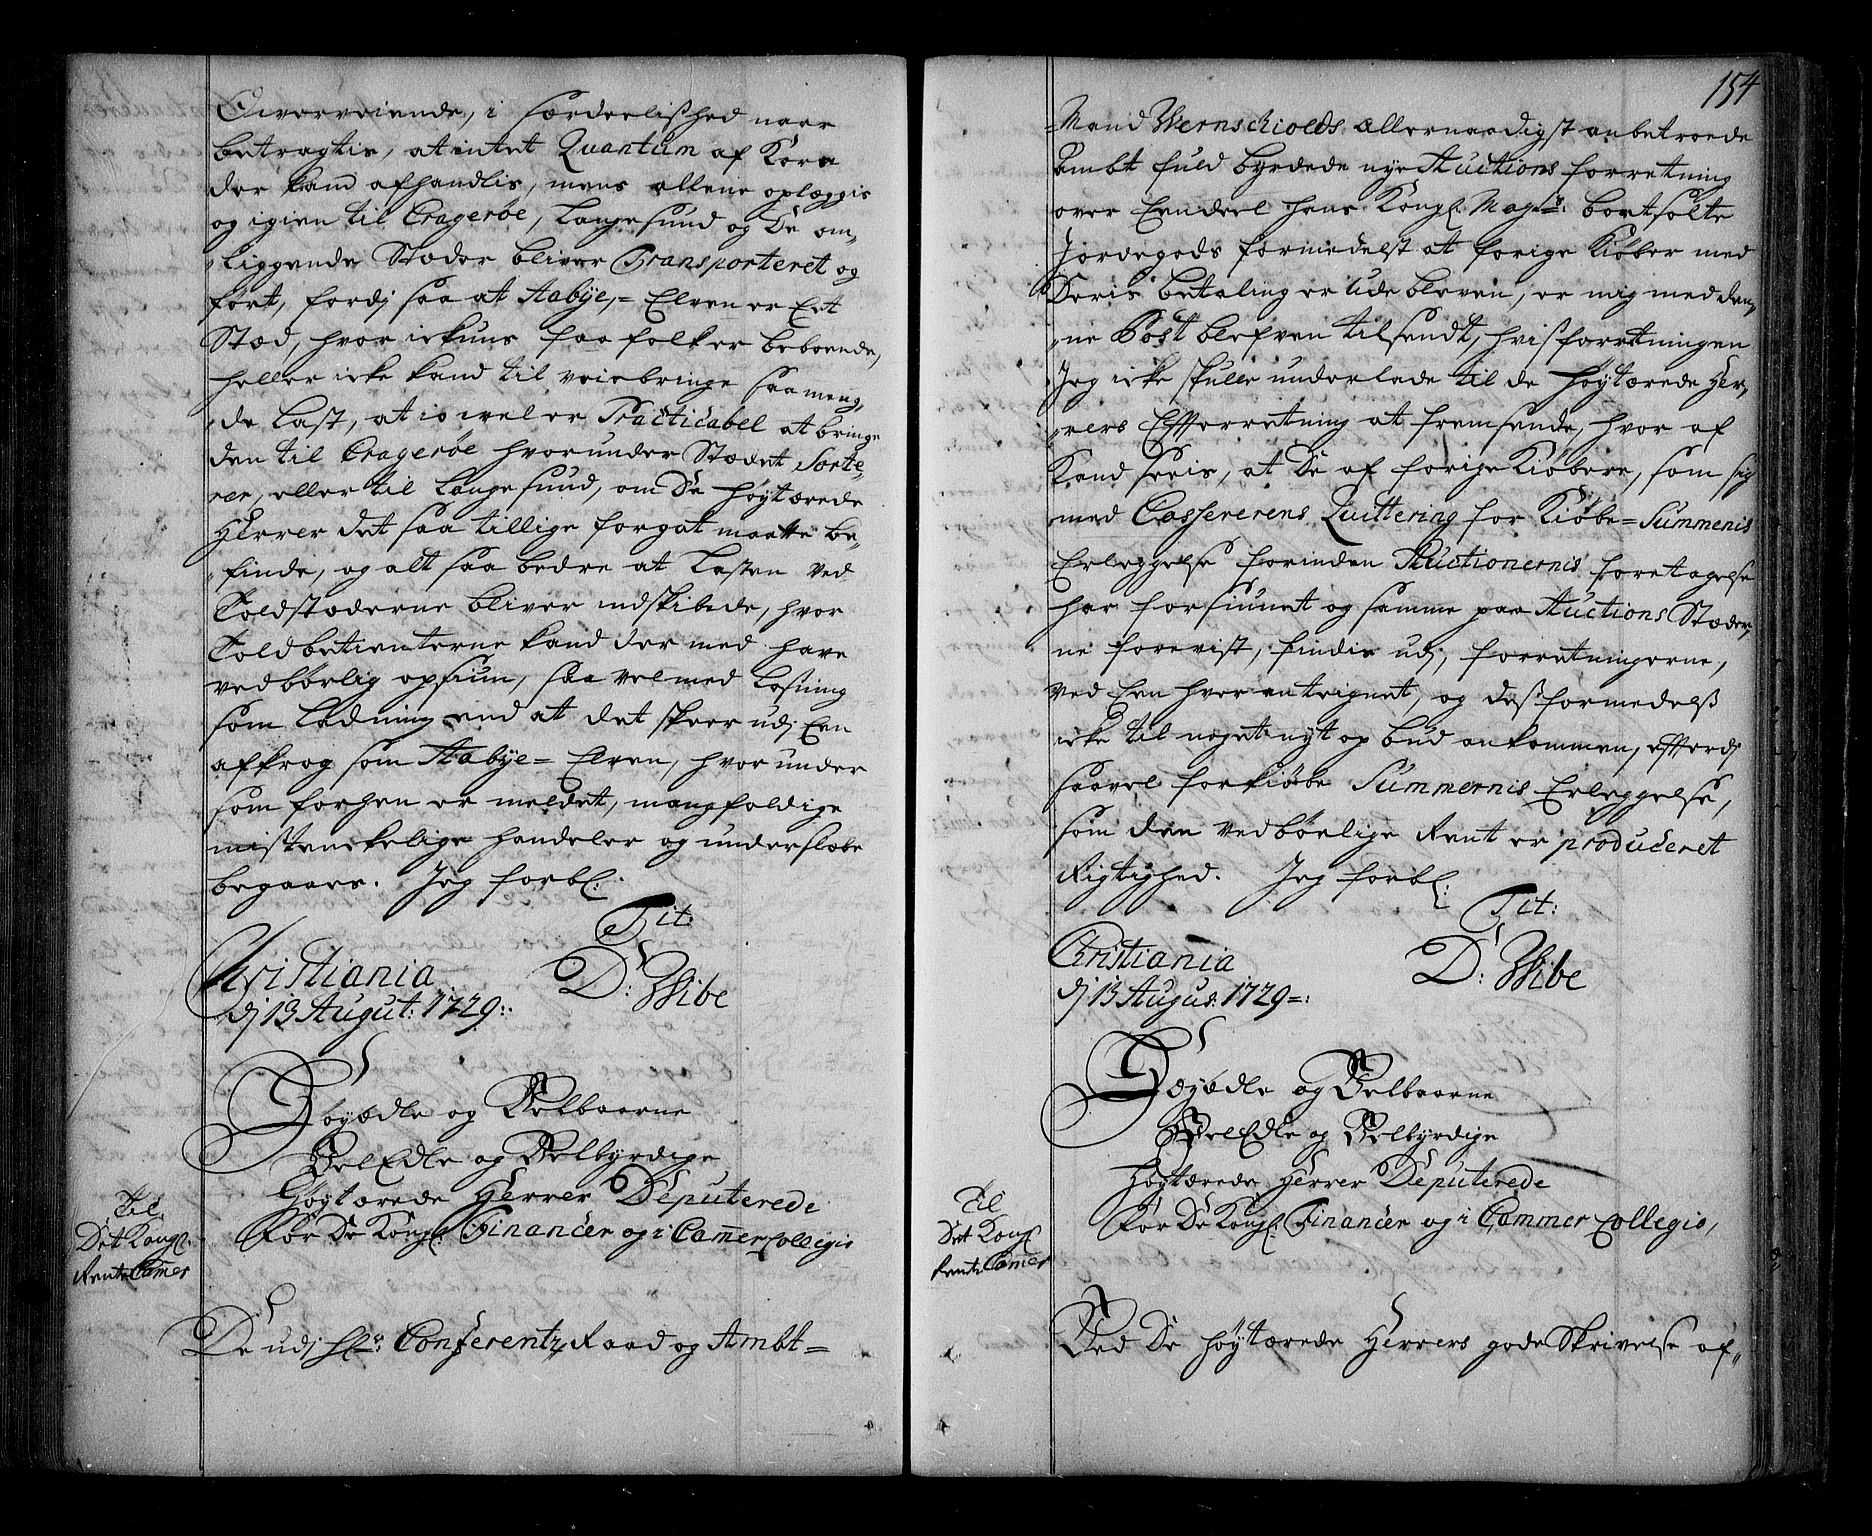 Overveiende, i særdeelished naar
betragtis, at intet Quantum af Korn
der kand afhandlis, mens allene oplæggis
og igien til Cragerøe, Langesund og De om,,
,,liggende Stæder bliver Transporteret og
ført, fordj saa at Aabÿe,= Elven er Eet
Stæd, hvor ickuns faa folk er beboende,
heller icke kand til veiebringe saa meng,,
,,de Last, at io vel er Practicabel at bringe
den til Cragerøe hvorunder Stædet Sorte,,
rer, eller til Langesund, om De høÿtærede
Herrer det saa tillige for got maatte be,,
,,finde, og alt saa bedre at Lasten ved
Toldstæderne bliver indskibede, hvor
Toldbetienterne kand der med have
vedbørlig opsiun, saa vel med Losning
som Ladning end at det skeer udj Een
afkrog som Aabÿe= Elven, hvor under
som forhen er meldet, mangfoldige
mistenckelige handeler og underslæbe
begaaes. Jeg forbl:
Tit:
Christiania
dj 13 August: 1729:.
D: Wibe
Høÿædle og Velbaarne
VelEdle og Velbÿrdige
Høÿtærede Herrer Deputerede
For De Kongl: Financer og i Camercollegio
Til
Det Kongl.
Rente Camer
De udj Hr: Conferentz Raad og Ambt=
154
=Mand Wernschiolds allernaadigst anbetroede
Ambt fuld bÿrdede nÿe Auctions forretning
over Eendeel hans Kongl: Mags: bortsolte
Jordegods formedelst at forige Kiøber med
Deris betaling er ude bleven, er mig med den,,
,,ne Post blefven tilsendt, hvis forretningen
Jeg icke skulle underlade til de høÿtærede Her,,
,,rers Efterretning at fremsende, hvor af
Kand seeis, at De af forige Kiøbere, som sig
med Cassererens Quittering for Kiøbe= Summenis
Erleggelse forinden Auctionernis foretagelse
har forsiunet og samme paa Auctions Stæder,,
ne forevist, findis udj forretningerne,
ved Een hver anteignet, og des formedelst
icke til noget nÿt op bud ankommen, efterdj
saavel for kiøbe Summernis Erleggelse,
som den vedbørlige Rent er produceret
Rigtighed. Jeg forbl:
Tit:
Christiania
dj 13 Augus: 1729=:
D: Wibe
Høÿædle og Velbaarne
VelEdle og Velbÿrdige
Høÿtærede Herrer Deputerede
For De Kongl: Financer og i Cammer Collegio,
Til
Det Kongl
Rente Camer
Ved De høÿtærede Herrers gode Skrivelse af,,